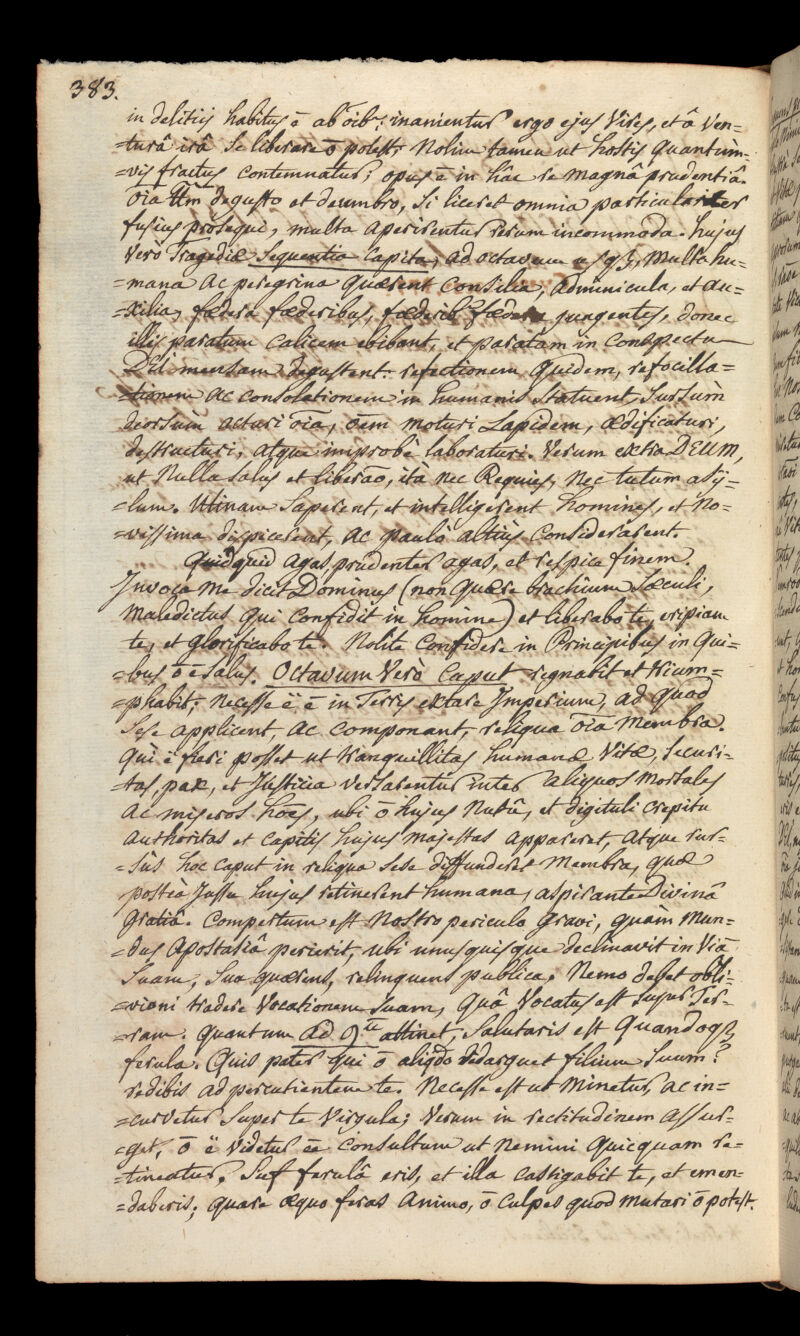 383.
in delitiis habitus ē ab oib₉: inanientur ergo ejus Vires, et â Ven=
=turâ irâ se liberare ō potest. Nolim tamen ut hostis quantùm=
=vis fractus contemnatur; opus ē in hâc re magnâ prudentiâ.
Oīa ttm̄ degusto et delumbro, si liceret omnia particulariter
fusius prosequi, multa aperirentur rerum incommoda. hujus
Verò Tragediæ sequentia Capita, ad octavum usqꝫ, Multa hu=
=mana ac peregrina quærent Consilia, adminicula, et au=
=xilia, fædera fæderibus, fæderib₉ fædera jungentes, donec
illis paratum calicem ebibant, et paratam in conspectu
DEI mensam degustent. refectionem quidem, refocilla=
=tionem ac consolationem in humanis statuent, sursùm
deorsùm acturi oīa, oēm moturi Lapidem, ædificaturi,
destructuri, atque improbè laboraturi. Verum extra DEUM,
ut Nulla salus et liberāo, ità nec Requies, Nec tutum asÿ=
=lum. Utinam saperent, et intelligerent homines, et no=
=vissima dispicerent, ac paulò altiùs considerarent.
Quidquid agas prudenter agas, et respice finem.
Invoca me dicit Dominus (non quære brachium Sæculi,
Maledictus qui confidit in homine) et liberabo te, eripiam
te, et glorificabo te. Nolite confidere in Principibus in qui=
=bus ō ē salus. Octavum Verò Caput regnabit et trium=
=phabit; necesse ē ē in Terris extare Imperium, ad quod
sese applicent, ac componant, reliqua oīa Membra.
Qui ē fieri posset ut tranquillitas humanæ Vitæ, securi=
=tas, pax, et Justitia versarentur inter aliquos mortales
ac miseros hoēs, ubi ō hujus Nutu, et digituli crepitu
authoritas et capitis hujus majestas appareret, atque rur=
=sùs hoc caput in reliqua sese diffunderet Membra, quæ
posteà Jussu hujus retinerent humana, aspirante Divinâ
gratiâ. Compertum est nostro periculo gravi, quàm Mun=
=dus Apostasiâ perierit, ubi unusquisque declinavit in Viā
Suam, Sua quærens, relinquens publica. Nemo debet obli=
=vioni tradere Vocationem Suam, quâ Vocatus est super Ter=
=ram. Quantum ad 9ᵘ attinet, salutaris est quandoqꝫ
ferula. Quis pater qui ō aliqdo redarguet filium suum?
redibis ad percutientem te. Necesse est ut minetur, ac in=
=curvetur super te Virgula; Verum in rectitudinem assur=
=get, ō ē Videtur ēē consultum ut nemini quicquam re=
=tineatur. Suf ferulâ eris, et illa castigabit te, et emen=
=daberis; quare æquo feras animo, ō culpes quod mutari ō potest.